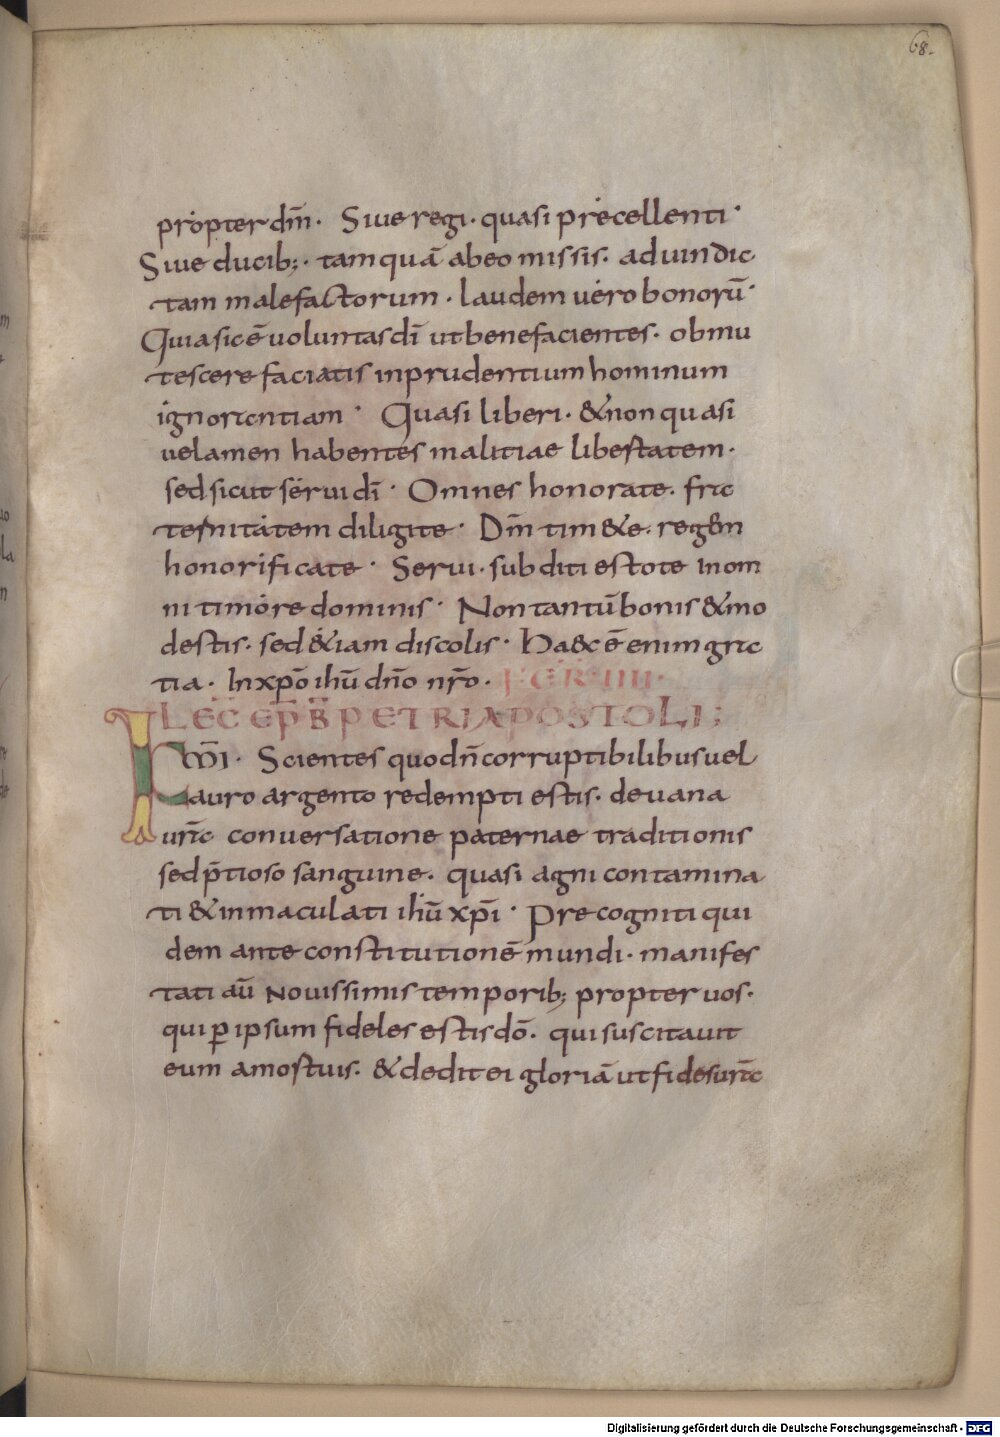 68.
propter dm̄. Siue regi. quasi precellenti.
Siue ducib;. tamquā abeo missis. aduindic
tam malefactorum. laudem uero bonorū.
Quia sic ē uoluntas dī ut benefacientes. obmu
tescere faciatis inprudentium hominum
ignorantiam. Quasi liberi. & non quasi
uelamen habentes malitiae libertatem.
sed sicut serui dī. Omnes honorate. fra
ternitatem diligite. Dm̄ tim&e. regem
honorificate. Serui. subditi estote in om
ni timore dominis. Non tantū bonis & mo
destis. sed &iam discolis. Haec ē enim gra
tia. In xp̄o ihū dn̄o nr̄o. FER IIII.
LEC̄ EP̄ B̄ PETRI APOSTOLI;
Km̄I. Scientes quod n̄ corruptibilibus uel
auro argento redempti estis. de uana
ur̄a conuersatione paternae traditionis
sed p̄tioso sanguine. quasi agni contamina
ti & inmaculati ihū xp̄i. Precogniti qui
dem ante constitutionē mundi. manifes
tati aū nouissimis temporib; propter uos.
qui ꝑ ipsum fideles estis dō. qui suscitauit
eum amostuis. & dedit ei gloriā ut fides ur̄a
Digitalisierung gefördert durch die Deutsche Forschungsgemeinschaft - DFG